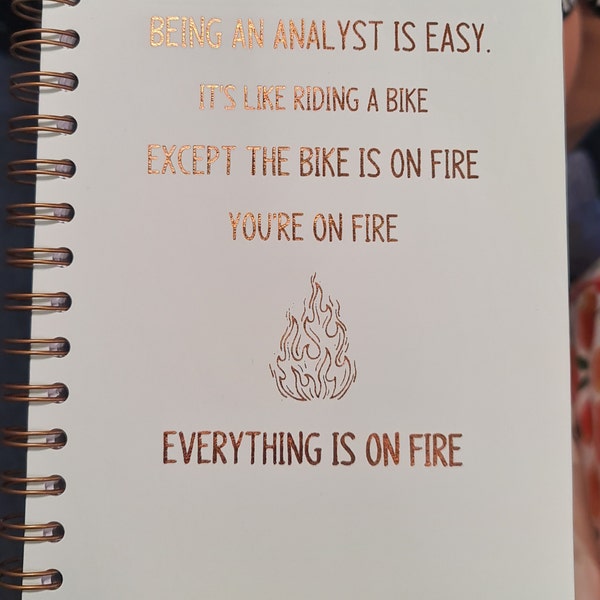 BEING AN ANALYST IS EASY.
IT'S LIKE RIDING A BIKE
EXCEPT THE BIKE IS ON FIRE
YOU'RE ON FIRE
EVERYTHING IS ON FIRE